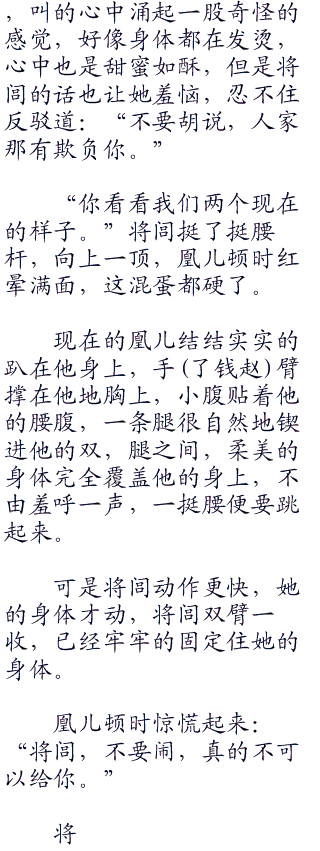 ，叫的心中涌起一股奇怪的
感觉，好像身体都在发烫，
心中也是甜蜜如酥，但是将
闾的话也让她羞恼，忍不住
反驳道：“不要胡说，人家
那有欺负你。”
“你看看我们两个现在
的样子。”将闾挺了挺腰
杆，向上一顶，凰儿顿时红
晕满面，这混蛋都硬了。
现在的凰儿结结实实的
趴在他身上，手(了钱赵)臂
撑在他地胸上，小腹贴着他
的腰腹，一条腿很自然地锲
进他的双，腿之间，柔美的
身体完全覆盖他的身上，不
由羞呼一声，一挺腰便要跳
起来。
可是将闾动作更快，她
的身体才动，将闾双臂一
收，已经牢牢的固定住她的
身体。
凰儿顿时惊慌起来：
“将闾，不要闹，真的不可
以给你。”
将